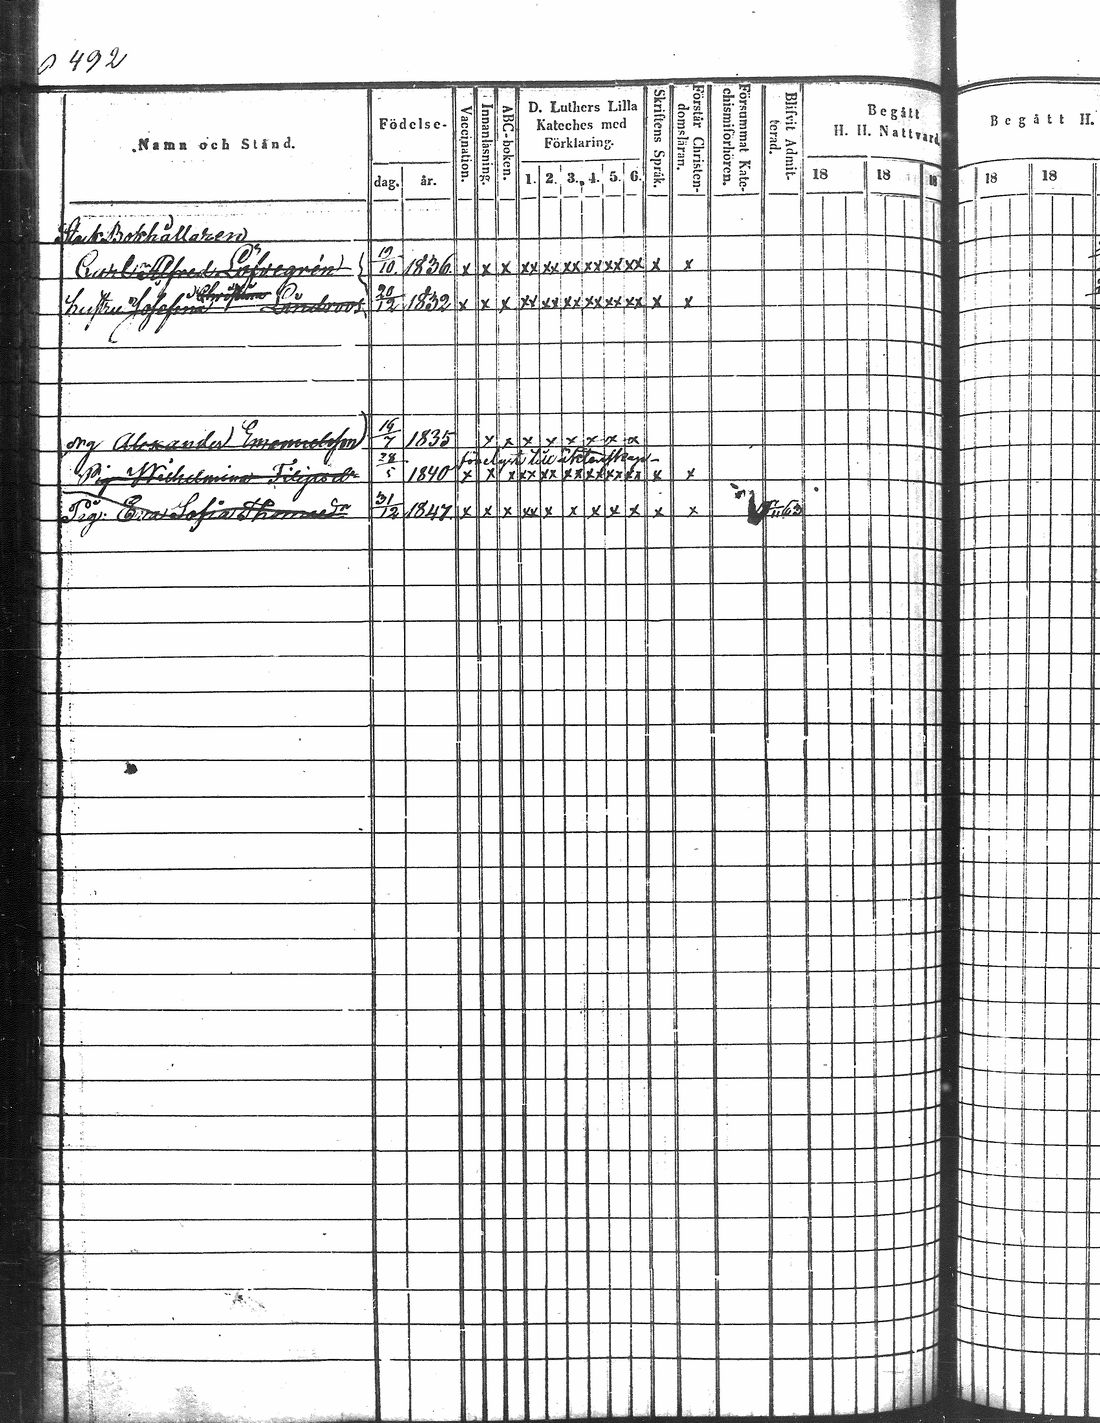 492
Namn och Stånd.
Födelse-
dag. år.
Vaccination.
Innanläsning.
ABC-boken.
D. Luthers Lilla
Kateches med
Förklaring.
1. 2. 3. 4. 5. 6.
Skriftens Språk.
Förstår Christen-
domsläran.
Försummat Kate-
chismiförhören.
Blifvit Admit-
terad.
Begått
H. H. Nattvard,
18 18 18
Begått H.
18 18
Bokhållaren
Carl Alfred Löfvegrén 19/10 1836 x x x xx xx xx xx xx xx x x
hustru Josefina Christina Lindroos 20/12 1832 x x x xx xx xx xx xx xx x x
drg Alexander Emanuelsson 16/7 1835 x x x x x x x x
förelyst till äktenskap
Pig Wilhelmina Filipsdr 28/5 1840 x x x xx xx xx xx xx xx x x
Pig: Eva Sofia Thomasdr 31/12 1847 x x x xx x x x x x x x 63